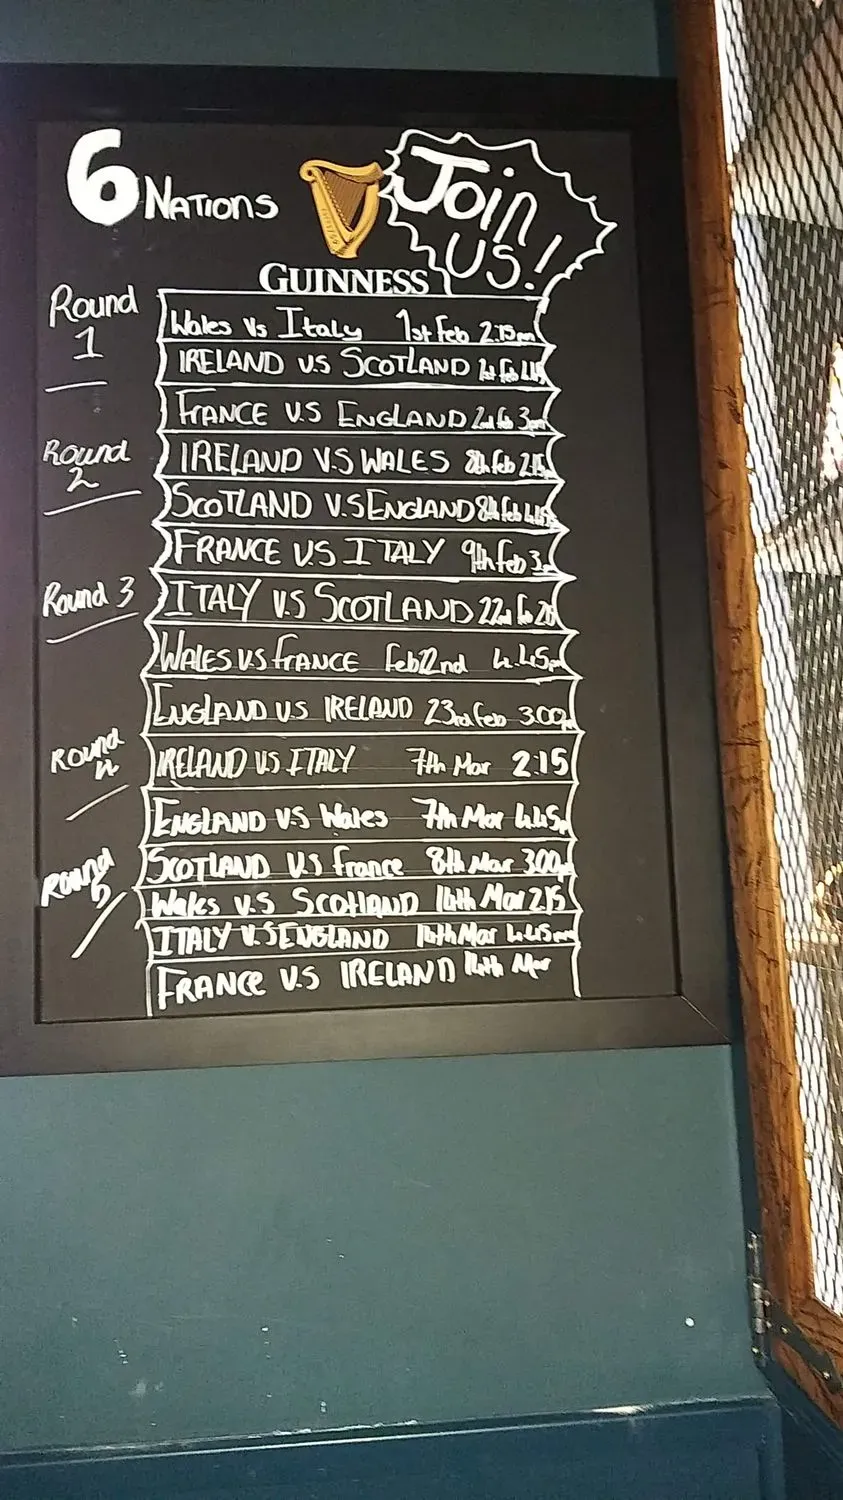 6 NATIONS
Join
US!
GUINNESS
Round
1
Wales Vs Italy 1st Feb 2:15pm
IRELAND V.S SCOTLAND 1st Feb 4.45
FRANCE V.S ENGLAND 2nd feb 3pm
Round
2
IRELAND V.S WALES 8th feb 2.15
SCOTLAND V.S ENGLAND 8th feb 4.45
FRANCE V.S ITALY 9th feb 3
Round 3
ITALY V.S SCOTLAND 22nd
WALES V.S FRANCE Feb 22nd 4.45pm
ENGLAND V.S IRELAND 23rd feb 3.00
Round
4
IRELAND V.S ITALY 7th Mar 2:15
ENGLAND V.S Wales 7th Mar 4.45
Round
5
SCOTLAND V.S france 8th Mar 3.00
Wales V.S SCOTLAND 14th Mar 2:15
ITALY V.S ENGLAND 14th Mar 4.45pm
FRANCE V.S IRELAND 14th Mar